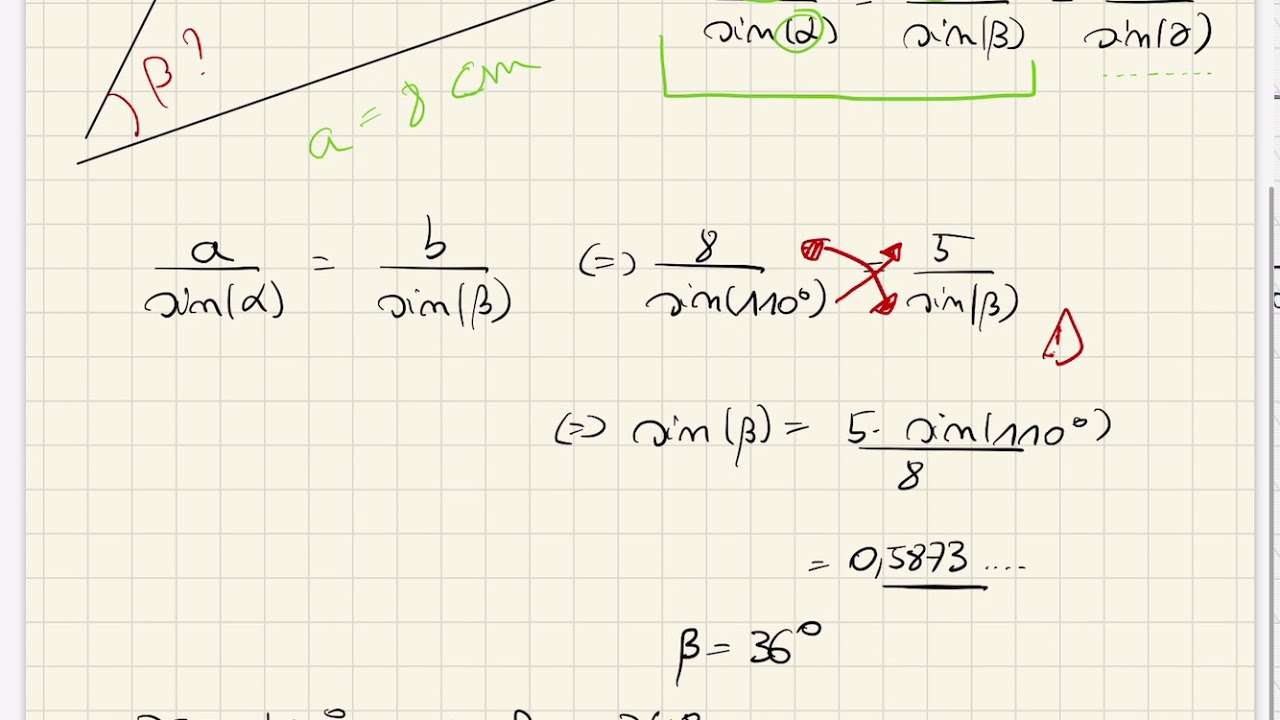 sin(α) = sin(β) = sin(γ)
β?
a = 8 cm
a/sin(α) = b/sin(β) (=) 8/sin(110°) = 5/sin(β)
(=) sin(β) = 5. sin(110°)/8
= 0,5873 ....
β = 36°